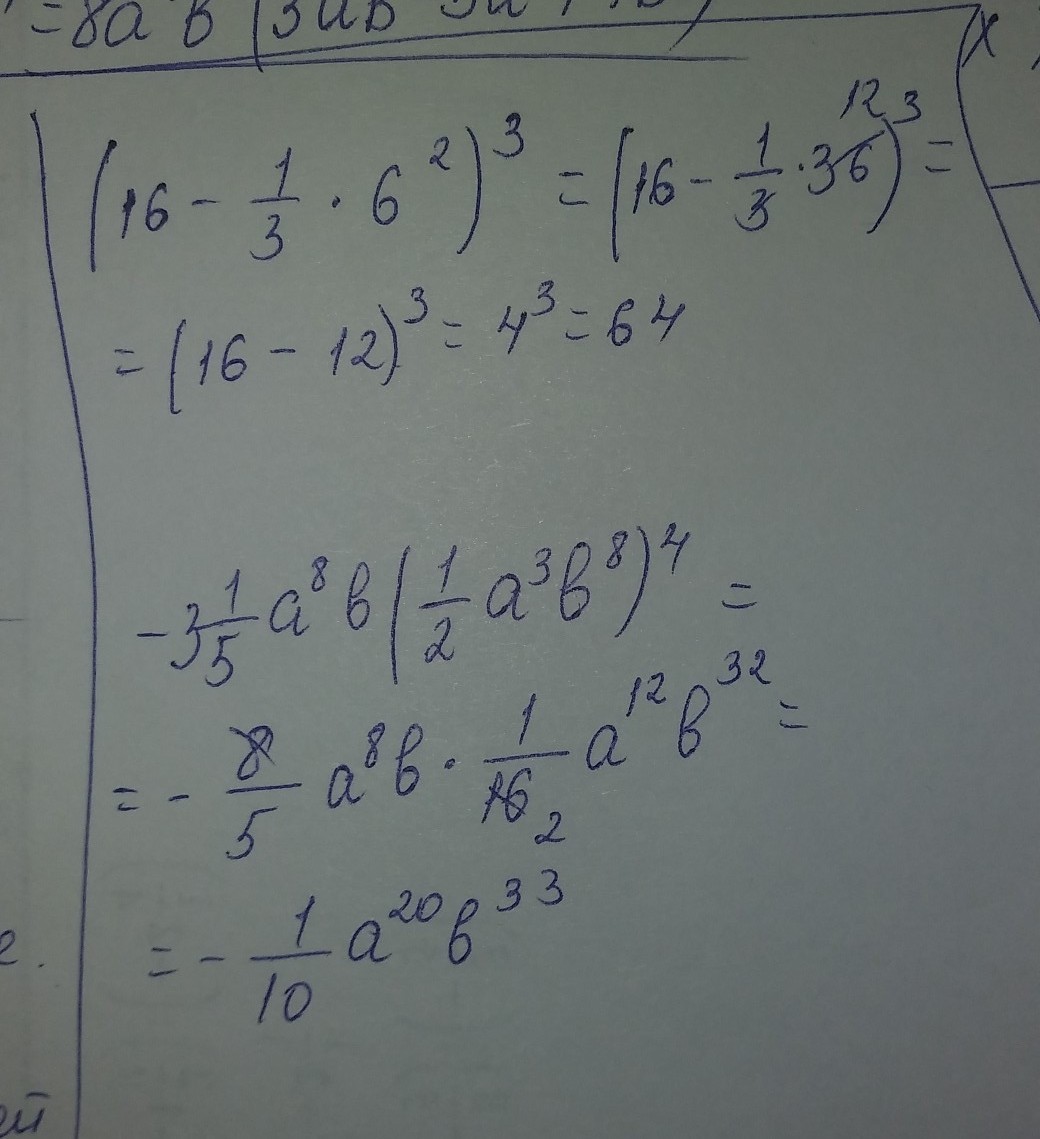 (16 - 1/3 · 6²)³ = (16 - 1/3 · 36)³ =
12
= (16 - 12)³ = 4³ = 64
- 3 1/5 a⁸b(1/2 a³b⁸)⁴ =
= - 8/5 a⁸b · 1/16 a¹²b³² =
2
= - 1/10 a²⁰b³³